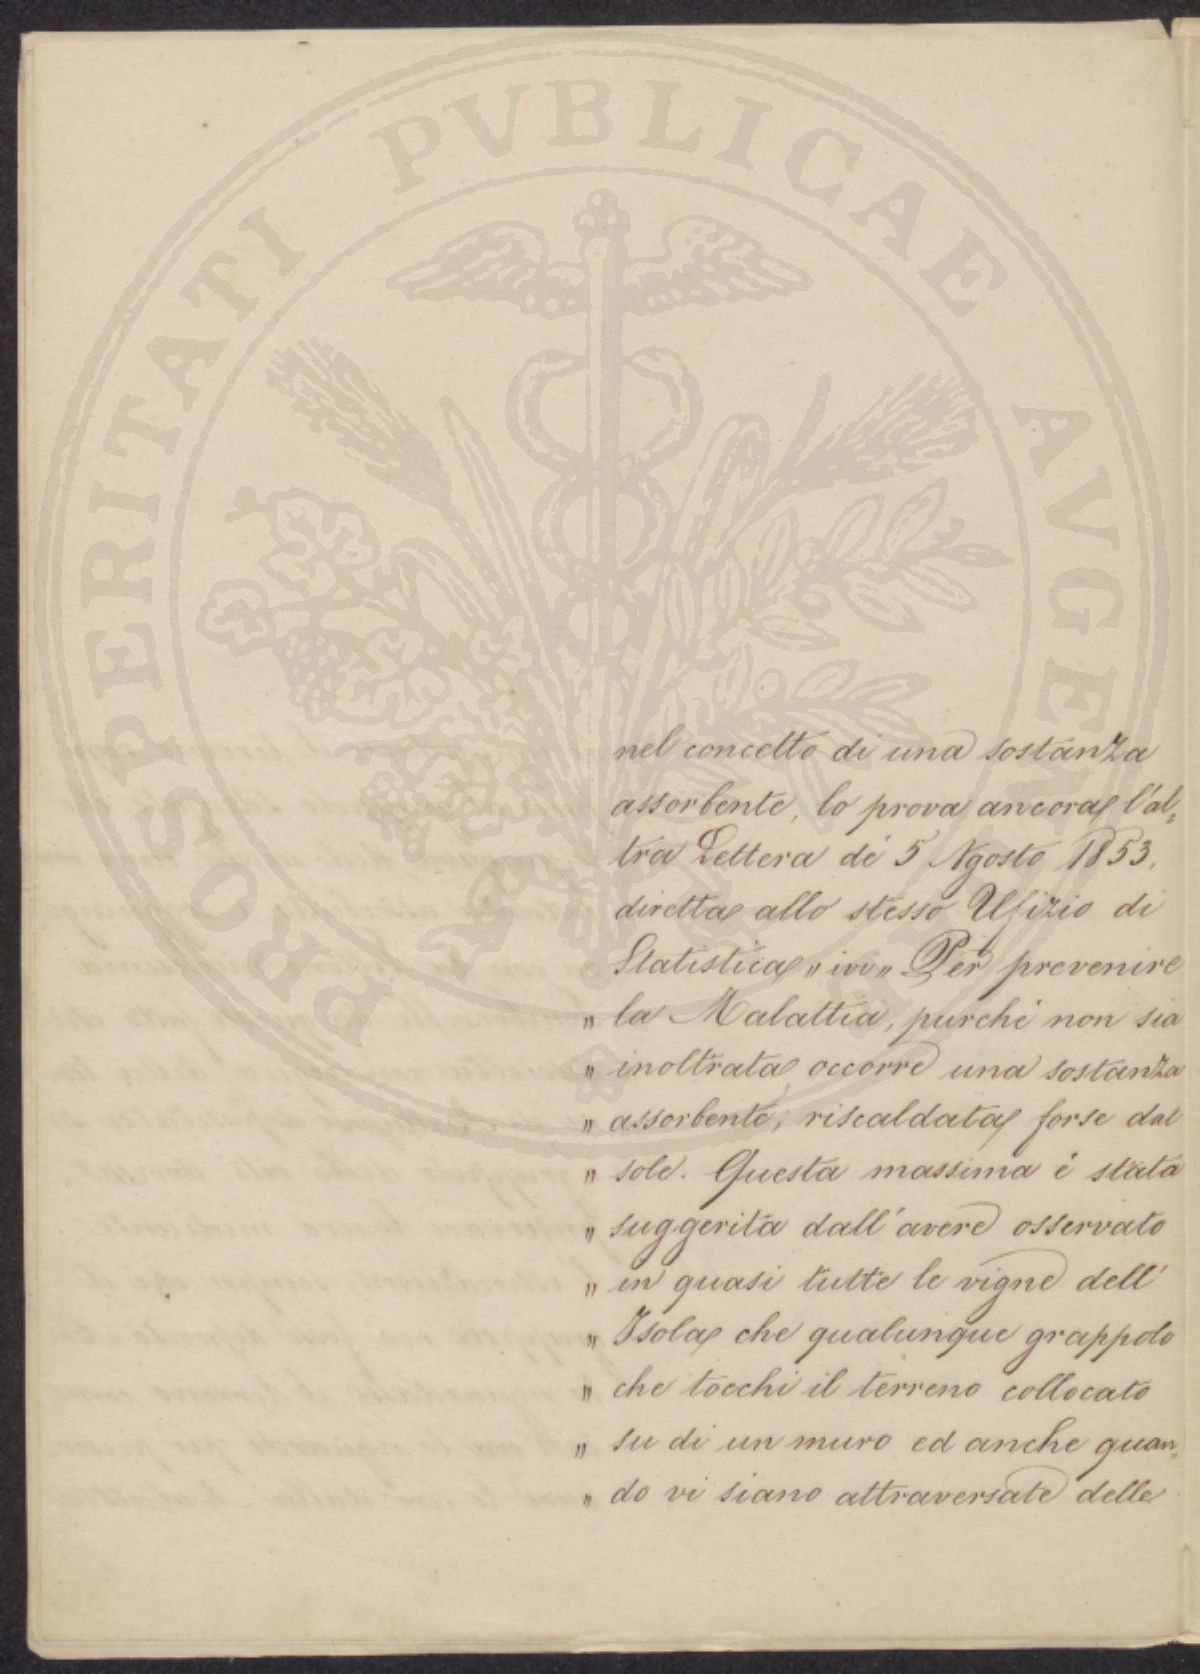 PROSPERITATI PUBLICAE AVGENDAE
nel concetto di una sostanza
assorbente, lo prova ancora l'al„
tra Lettera dé 5 Agosto 1853.
diretta allo stesso Ufizio di
Statistica „ ivi „ Per prevenire
„ la Malattia, purché non sia
„ inoltrata occorre una sostanza
„ assorbente, riscaldata forse dal
„ sole. Questa massima é stata
„ suggerita dall'avere osservato
„ in quasi tutte le vigne dell'
„ Isola che qualunque grappolo
„ che tocchi il terreno collocato
„ su di un muro ed anche quan„
„ do vi siano attraversate delle